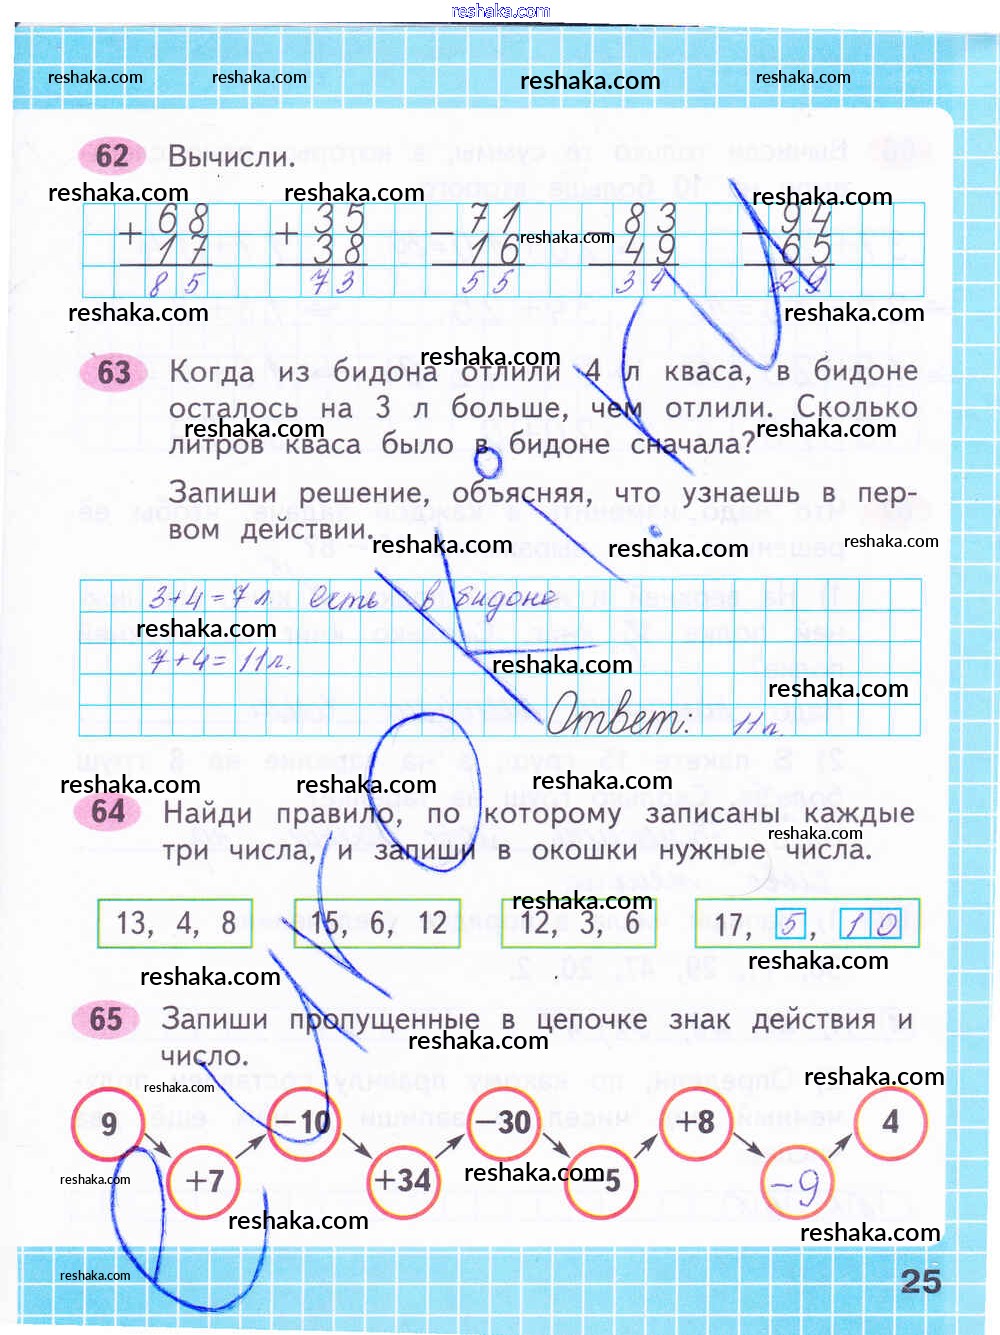 reshaka.com
reshaka.com reshaka.com reshaka.com reshaka.com
reshaka.com
62 Вычисли.
reshaka.com reshaka.com reshaka.com
+ 68 + 35 - 71 - 83 - 94
17 38 16 49 65
85 73 55 34 29
reshaka.com
reshaka.com reshaka.com
reshaka.com
63 Когда из бидона отлили 4 л кваса, в бидоне
осталось на 3 л больше, чем отлили. Сколько
reshaka.com reshaka.com
литров кваса было в бидоне сначала?
Запиши решение, объясняя, что узнаешь в пер-
вом действии.
reshaka.com reshaka.com reshaka.com
3+4=7 л. есть в бидоне
reshaka.com
7+4=11л.
reshaka.com
reshaka.com
Ответ: 11л.
reshaka.com reshaka.com reshaka.com
64 Найди правило, по которому записаны каждые
reshaka.com
три числа, и запиши в окошки нужные числа.
reshaka.com
13, 4, 8 15, 6, 12 12, 3, 6 17, 5, 10
reshaka.com reshaka.com
65 Запиши пропущенные в цепочке знак действия и
reshaka.com
число.
reshaka.com reshaka.com
9 −10 −30 +8 4
reshaka.com reshaka.com
+7 +34 −5 −9
reshaka.com reshaka.com
reshaka.com
25